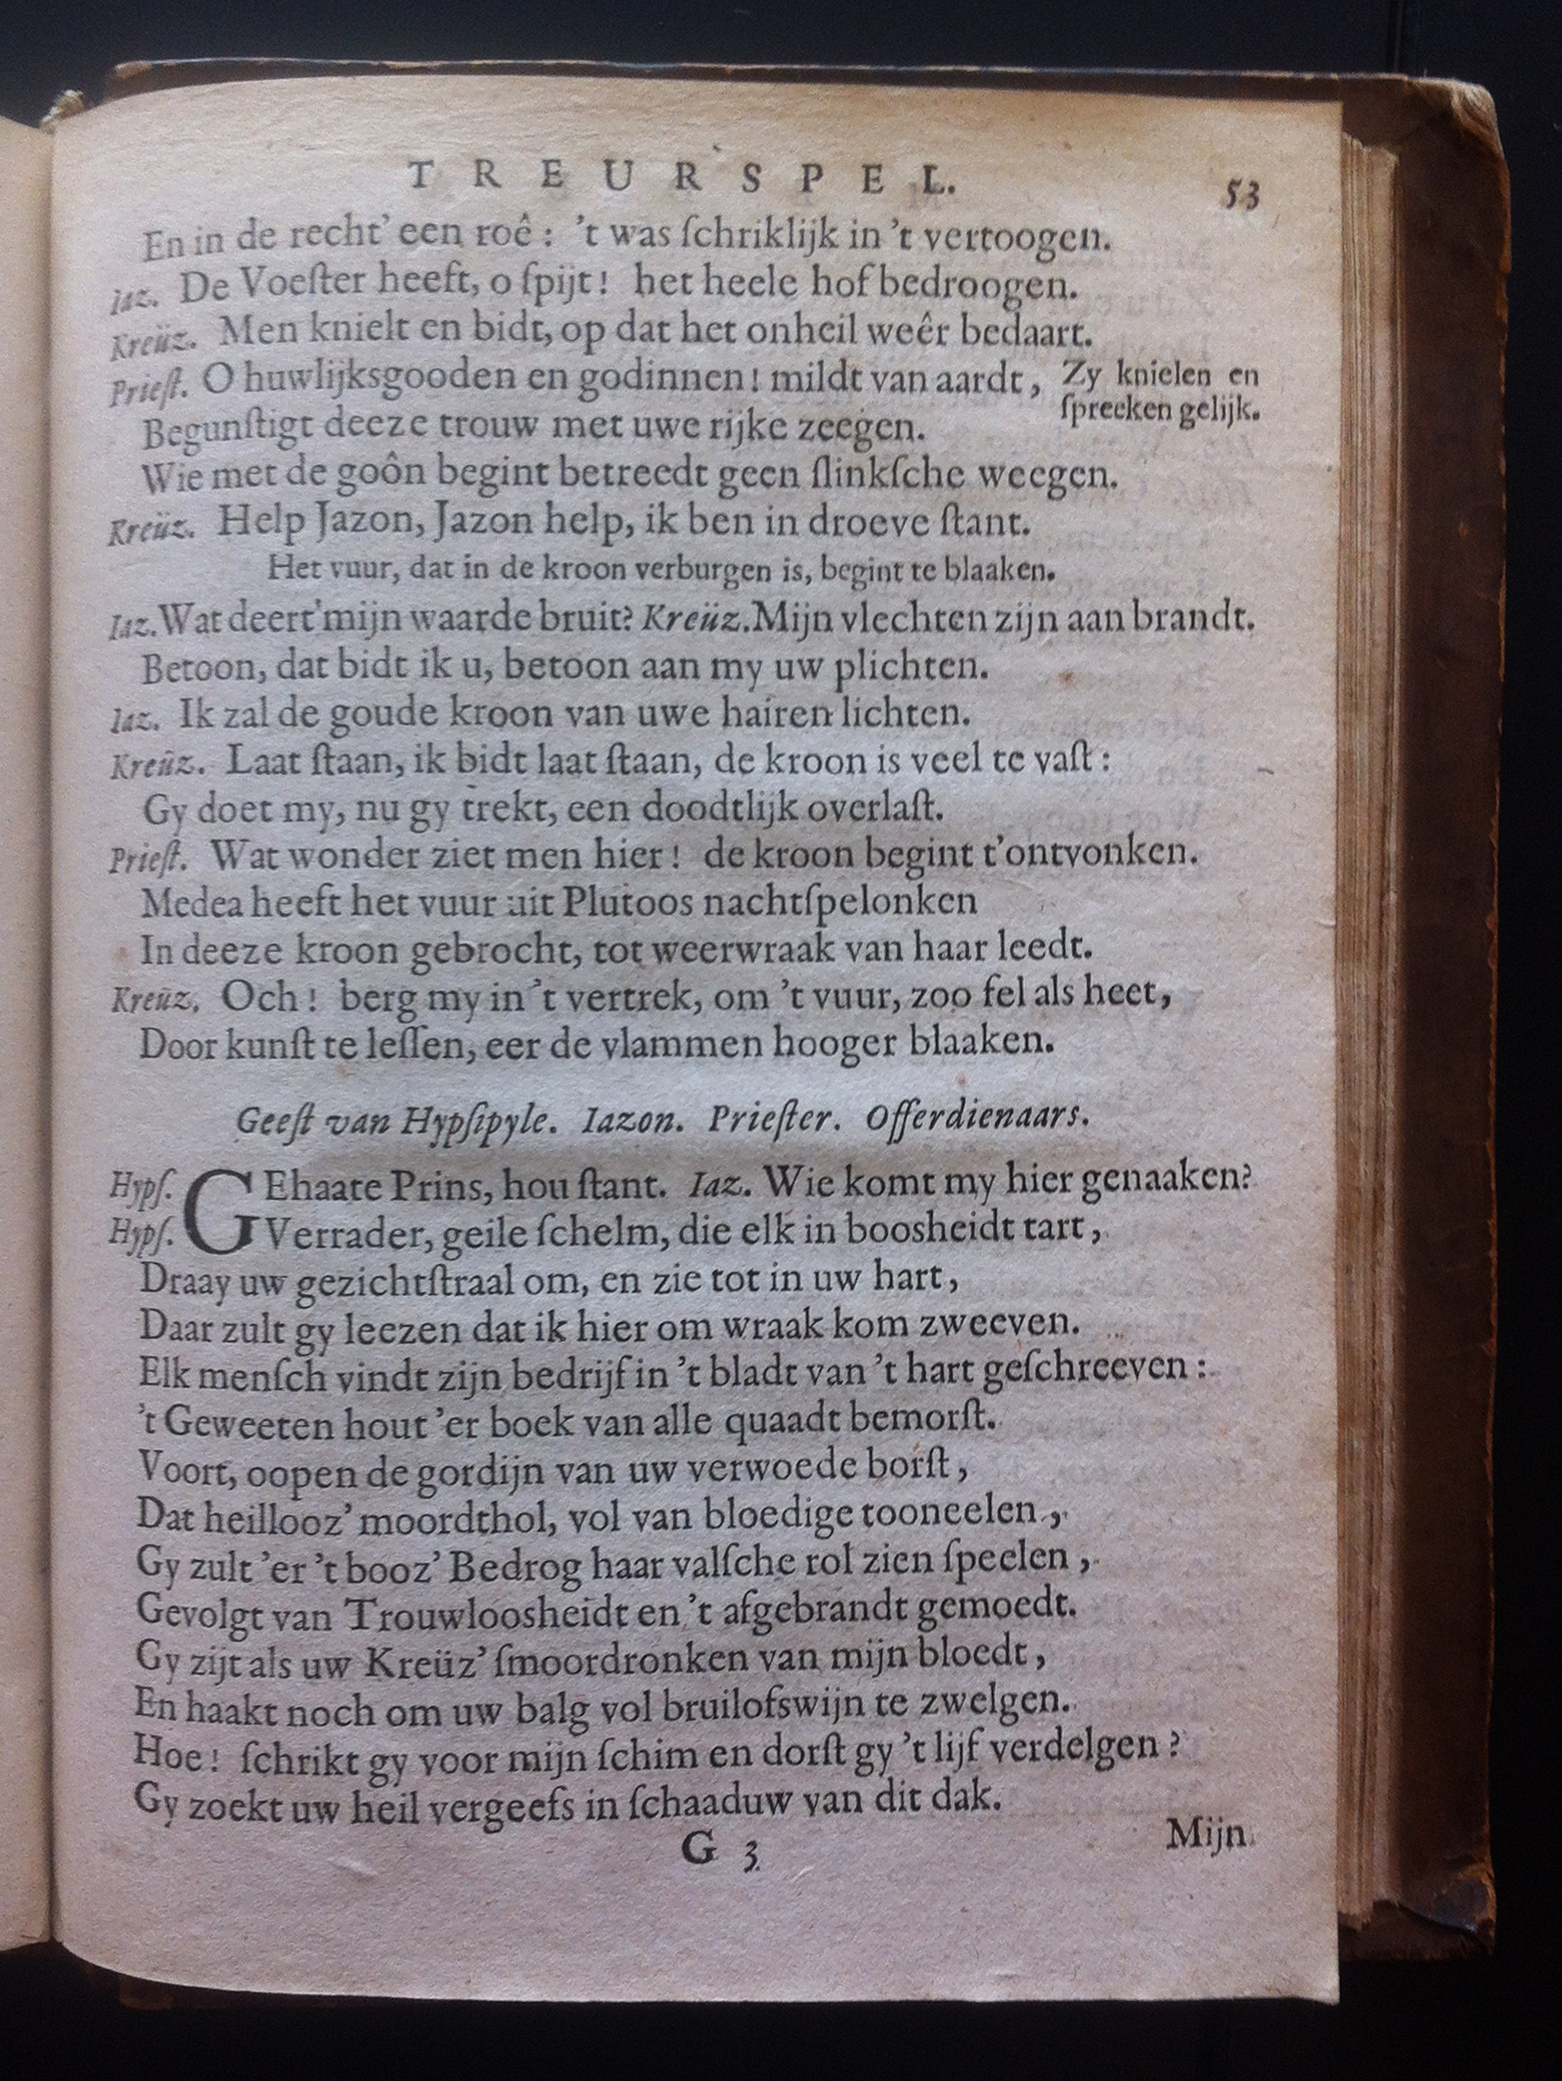 TREURSPEL. 53
En in de recht' een roê: 't was ſchriklijk in 't vertoogen.
Iaz. De Voeſter heeft, o ſpijt! het heele hof bedroogen.
Kreüz. Men knielt en bidt, op dat het onheil weêr bedaart.
Prieſt. O huwlijksgooden en godinnen! mildt van aardt, Zy knielen en
ſpreeken gelijk.
Begunſtigt deeze trouw met uwe rijke zeegen.
Wie met de goôn begint betreedt geen ſlinkſche weegen.
Kreüz. Help Jazon, Jazon help, ik ben in droeve ſtant.
Het vuur, dat in de kroon verburgen is, begint te blaaken.
Iaz. Wat deert'mijn waarde bruit? Kreüz. Mijn vlechten zijn aan brandt.
Betoon, dat bidt ik u, betoon aan my uw plichten.
Iaz. Ik zal de goude kroon van uwe hairen lichten.
Kreüz. Laat ſtaan, ik bidt laat ſtaan, de kroon is veel te vaſt:
Gy doet my, nu gy trekt, een doodtlijk overlaſt.
Prieſt. Wat wonder ziet men hier! de kroon begint t'ontvonken.
Medea heeft het vuur uit Plutoos nachtſpelonken
In deeze kroon gebrocht, tot weerwraak van haar leedt.
Kreüz. Och! berg my in 't vertrek, om 't vuur, zoo fel als heet,
Door kunſt te leſſen, eer de vlammen hooger blaaken.
Geeſt van Hypſipyle. Iazon. Prieſter. Offerdienaars.
Hypſ. GEhaate Prins, hou ſtant. Iaz. Wie komt my hier genaaken?
Hypſ. Verrader, geile ſchelm, die elk in boosheidt tart,
Draay uw gezichtſtraal om, en zie tot in uw hart,
Daar zult gy leezen dat ik hier om wraak kom zweeven.
Elk menſch vindt zijn bedrijf in 't bladt van 't hart geſchreeven:
't Geweeten hout 'er boek van alle quaadt bemorſt.
Voort, oopen de gordijn van uw verwoede borſt,
Dat heillooz' moordthol, vol van bloedige tooneelen,
Gy zult 'er 't booz' Bedrog haar valſche rol zien ſpeelen,
Gevolgt van Trouwloosheidt en 't afgebrandt gemoedt.
Gy zijt als uw Kreüz' ſmoordronken van mijn bloedt,
En haakt noch om uw balg vol bruilofswijn te zwelgen.
Hoe! ſchrikt gy voor mijn ſchim en dorſt gy 't lijf verdelgen?
Gy zoekt uw heil vergeefs in ſchaaduw van dit dak.
G 3 Mijn